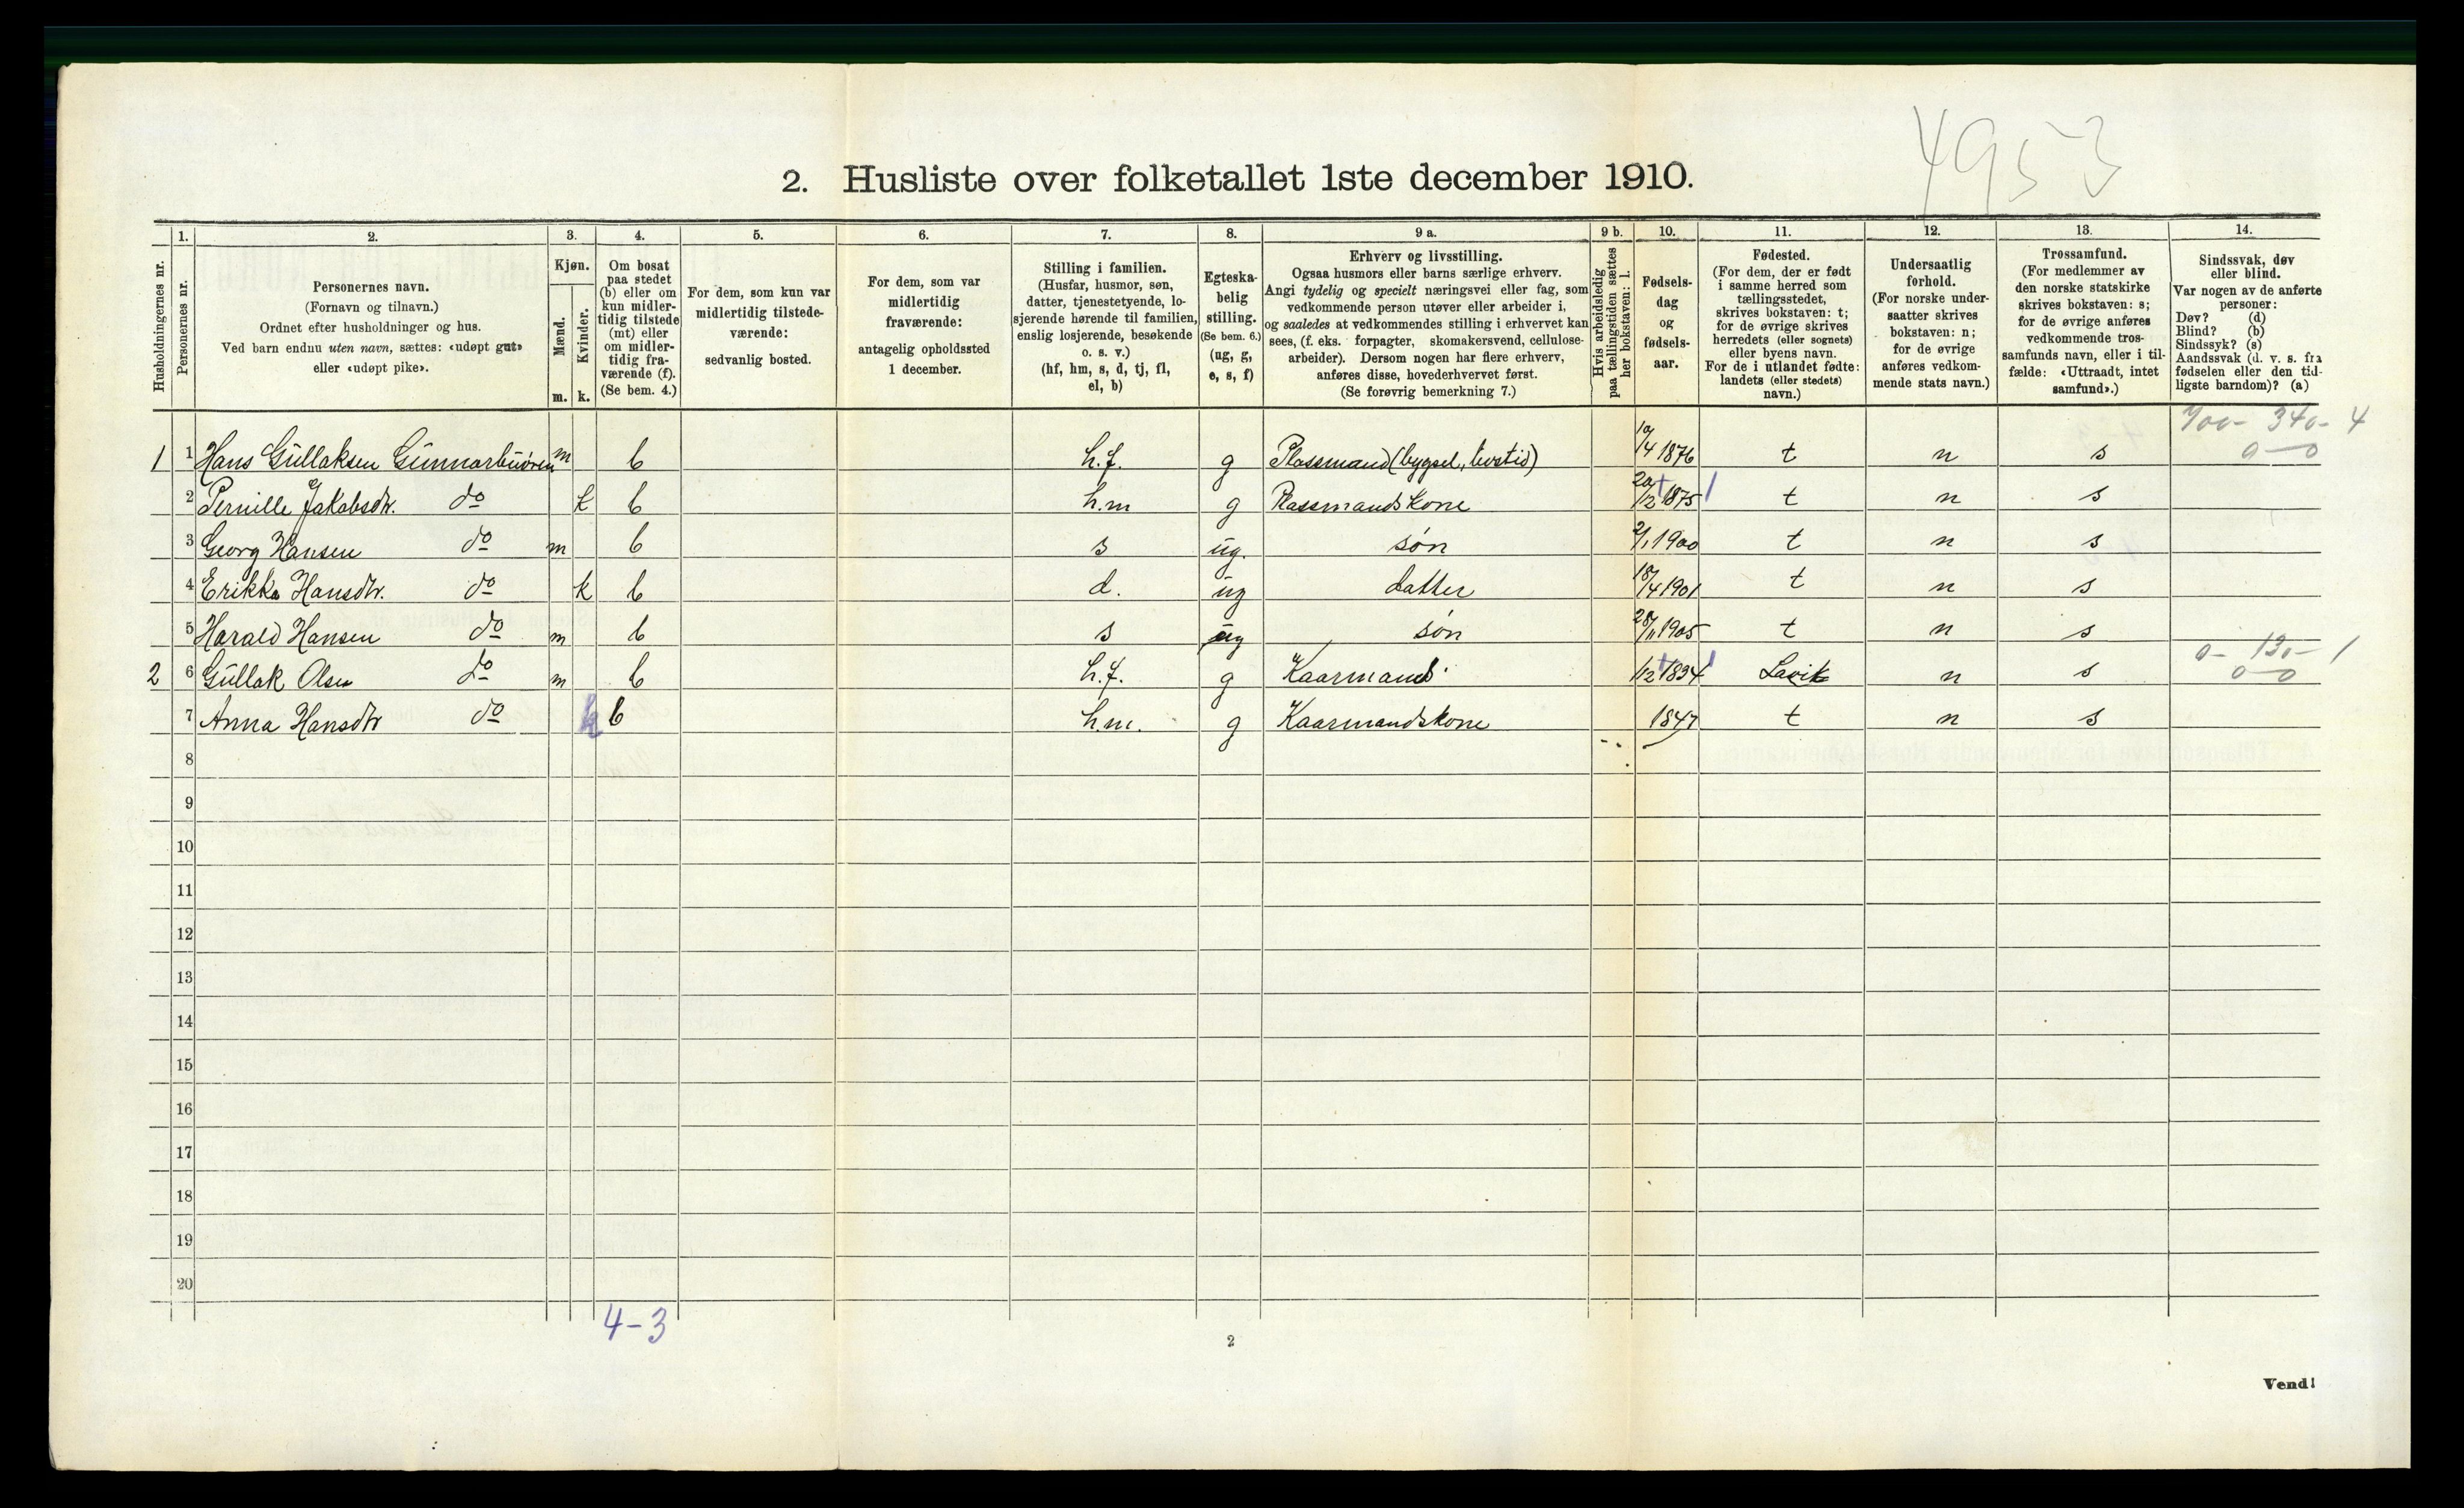 4953
2. Husliste over folketallet 1ste december 1910.
Husholdningernes nr.
1. Personernes nr.
2. Personernes navn.
(Fornavn og tilnavn.)
Ordnet efter husholdninger og hus.
Ved barn endnu uten navn, sættes: «udøpt gut»
eller «udøpt pike».
3. Kjøn.
Mænd. m.
Kvinder. k.
4. Om bosat
paa stedet
(b) eller om
kun midler-
tidig tilstede
(mt) eller
om midler-
tidig fra-
værende (f).
(Se bem. 4.)
5. For dem, som kun var
midlertidig tilstede-
værende:
sedvanlig bosted.
6. For dem, som var
midlertidig
fraværende:
antagelig opholdssted
1 december.
7. Stilling i familien.
(Husfar, husmor, søn,
datter, tjenestetyende, lo-
sjerende hørende til familien,
enslig losjerende, besøkende
o. s. v.)
(hf, hm, s, d, tj, fl,
el, b)
8. Egteska-
belig
stilling.
(Se bem. 6.)
(ug, g,
e, s, f)
9 a. Erhverv og livsstilling.
Ogsaa husmors eller barns særlige erhverv.
Angi tydelig og specielt næringsvei eller fag, som
vedkommende person utøver eller arbeider i,
og saaledes at vedkommendes stilling i erhvervet kan
sees, (f. eks. forpagter, skomakersvend, cellulose-
arbeider). Dersom nogen har flere erhverv,
anføres disse, hovederhvervet først.
(Se forøvrig bemerkning 7.)
9 b. Hvis arbeidsledig
paa tællingstiden sættes
her bokstaven: l.
10. Fødsels-
dag
og
fødsels-
aar.
11. Fødested.
(For dem, der er født
i samme herred som
tællingsstedet,
skrives bokstaven: t;
for de øvrige skrives
herredets (eller sognets)
eller byens navn.
For de i utlandet fødte:
landets (eller stedets)
navn.)
12. Undersaatlig
forhold.
(For norske under-
saatter skrives
bokstaven: n;
for de øvrige
anføres vedkom-
mende stats navn.)
13. Trossamfund.
(For medlemmer av
den norske statskirke
skrives bokstaven: s;
for de øvrige anføres
vedkommende tros-
samfunds navn, eller i til-
fælde: «Uttraadt, intet
samfund».)
14. Sindssvak, døv
eller blind.
Var nogen av de anførte
personer:
Døv? (d)
Blind? (b)
Sindssyk? (s)
Aandssvak (d. v. s. fra
fødselen eller den tid-
ligste barndom)? (a)
700- 340- 4
0-0
1 1 Hans Gullaksen Gunnarbuøren m b h.f. g Plassmand (bygsel, livstid) 10/4 1876 t n s
2 Pernille Jakobsdtr. do k b h.m g Plassmandskone 20/12 1875 t n s
3 Georg Hansen do m b s ug. søn 2/1 1900 t n s
4 Erikka Hansdtr. do k b d. ug datter 18/4 1901 t n s
5 Harald Hansen do m b s ug søn 28/11 1905 t n s
0- 130- 1
0-0
2 6 Gullak Olsen do m b h.f. g Kaarmand 1/12 1834 Lavik n s
7 Anna Hansdtr do k b h.m. g Kaarmandskone 1847 t n s
8
9
10
11
12
13
14
15
16
17
18
19
20
4-3
2
Vend!